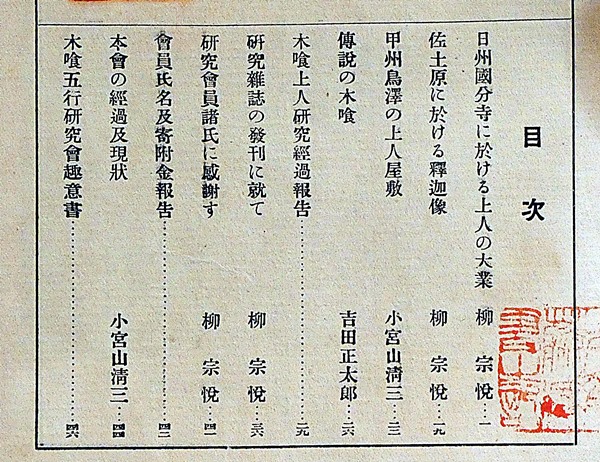 目次
日州國分寺に於ける上人の大業 柳宗悅…一
佐土原に於ける釋迦像 柳宗悅…一九
甲州鳥澤の上人屋敷 小宮山淸三…二三
傳說の木喰 吉田正太郞…二六
木喰上人硏究經過報吿…二九
硏究雜誌の發刊に就て 柳宗悅…三六
硏究會員諸氏に感謝す 柳宗悅…四一
會員氏名及寄附金報吿…四二
本會の經過及現狀 小宮山淸三…四四
木喰五行硏究會趣意書…四六